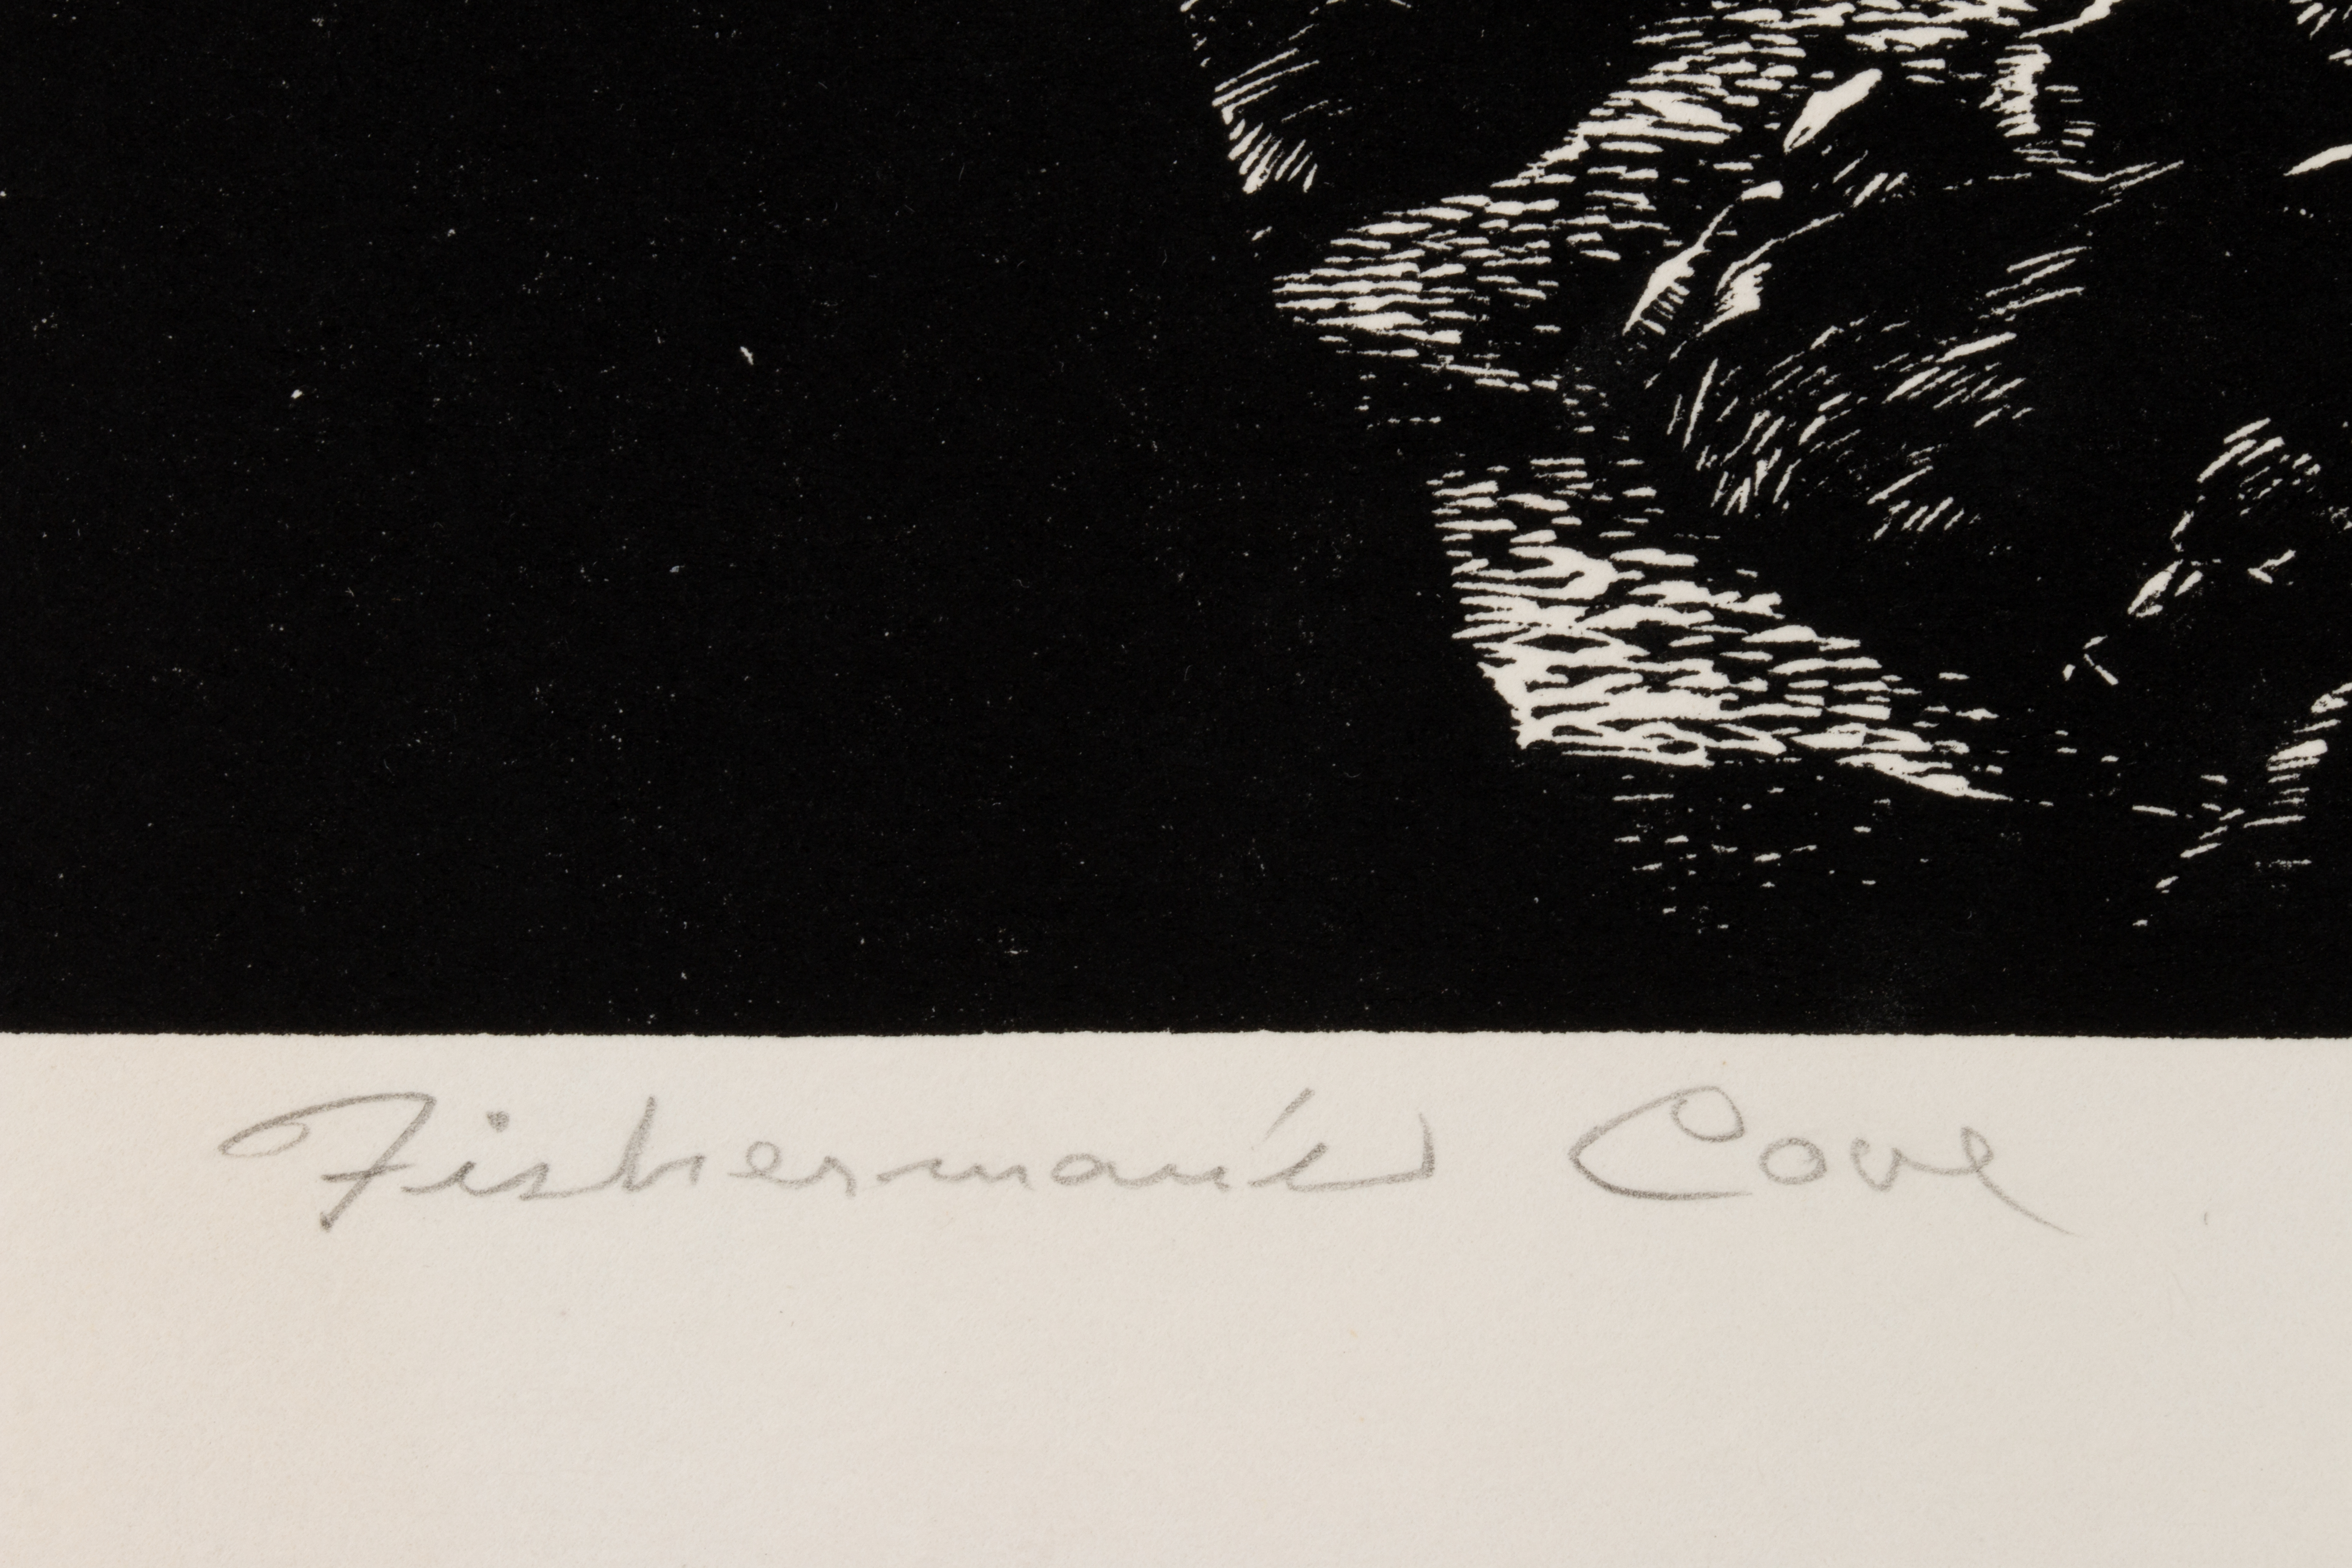 Fisherman's Cove